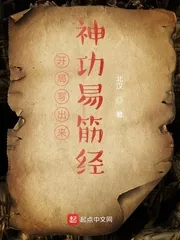 神功易筋经
开局写出来
北汉 著
起点中文网